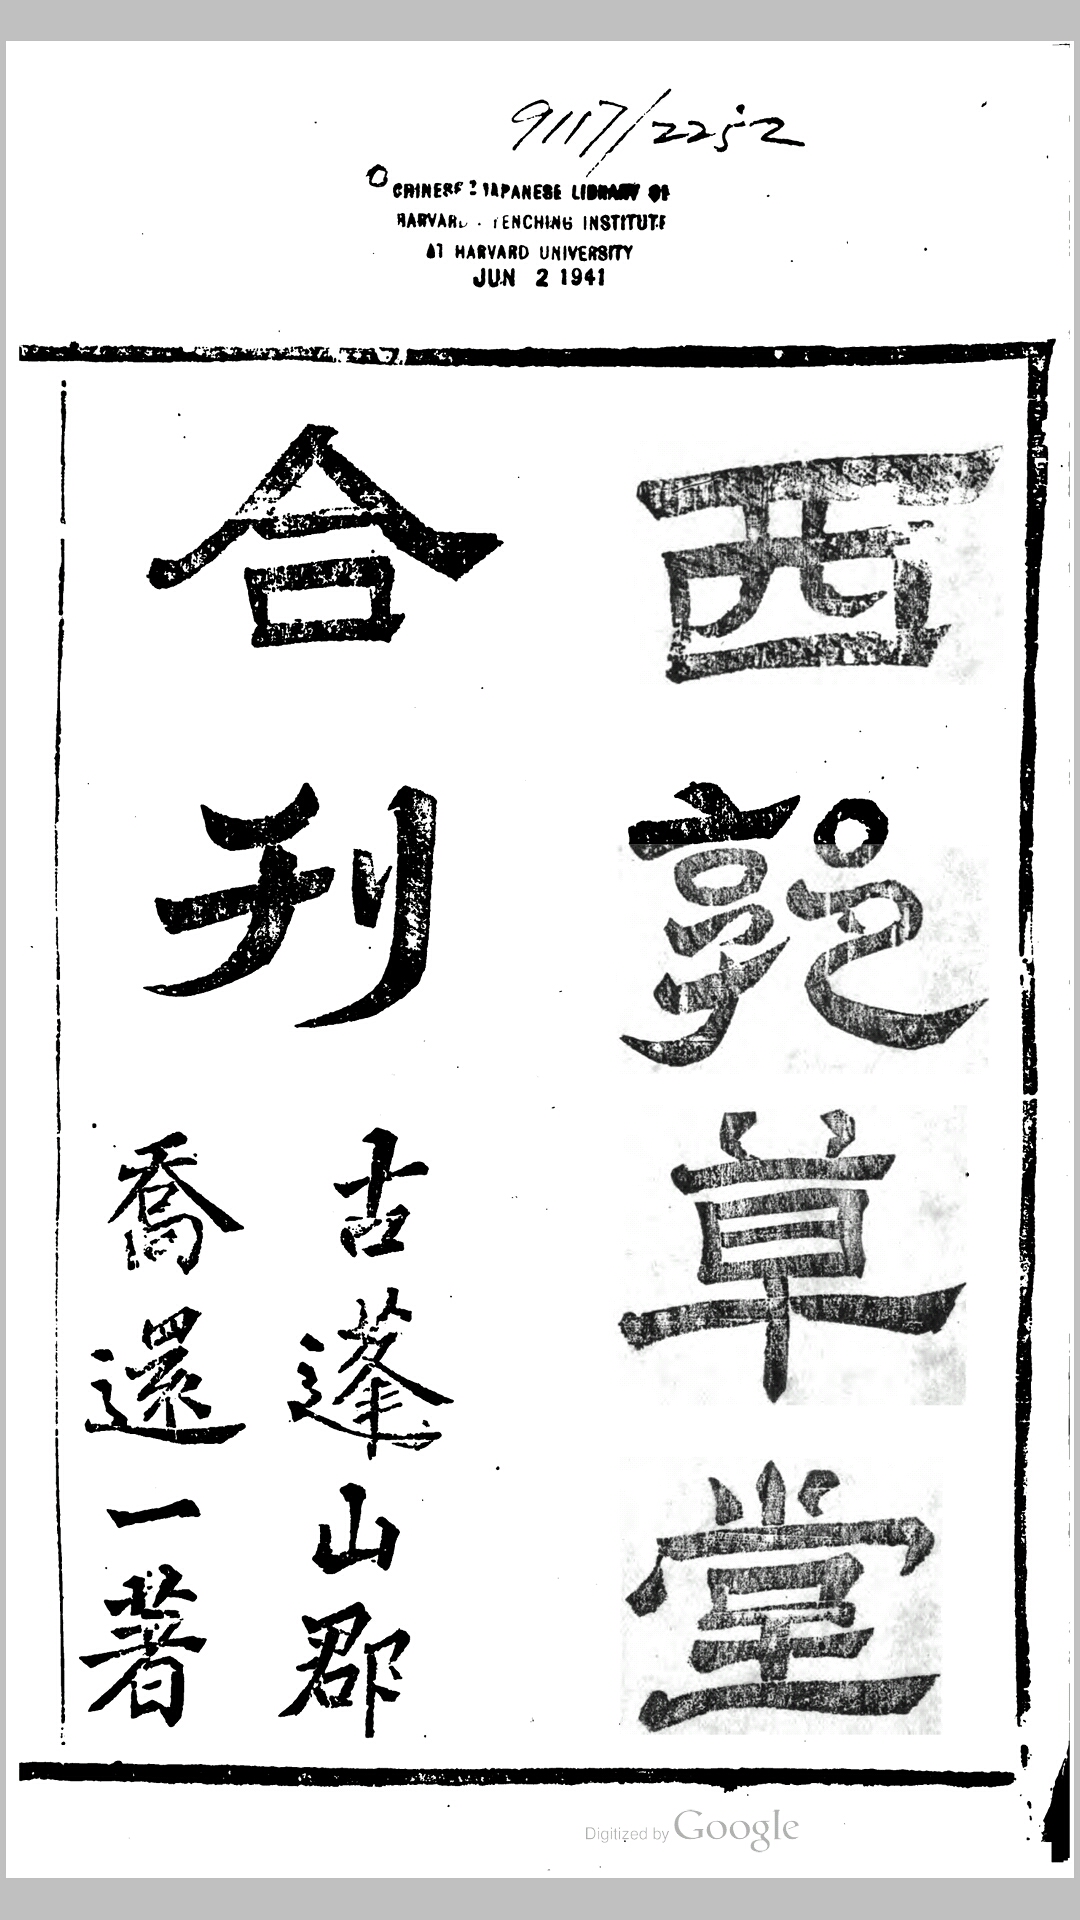 9117/2252
CHINESE-JAPANESE LIBRARY OF
HARVARD-YENCHING INSTITUTE
AT HARVARD UNIVERSITY
JUN 2 1941
西郭草堂
合刊
古蓬山郡
喬還一著
Digitized by Google